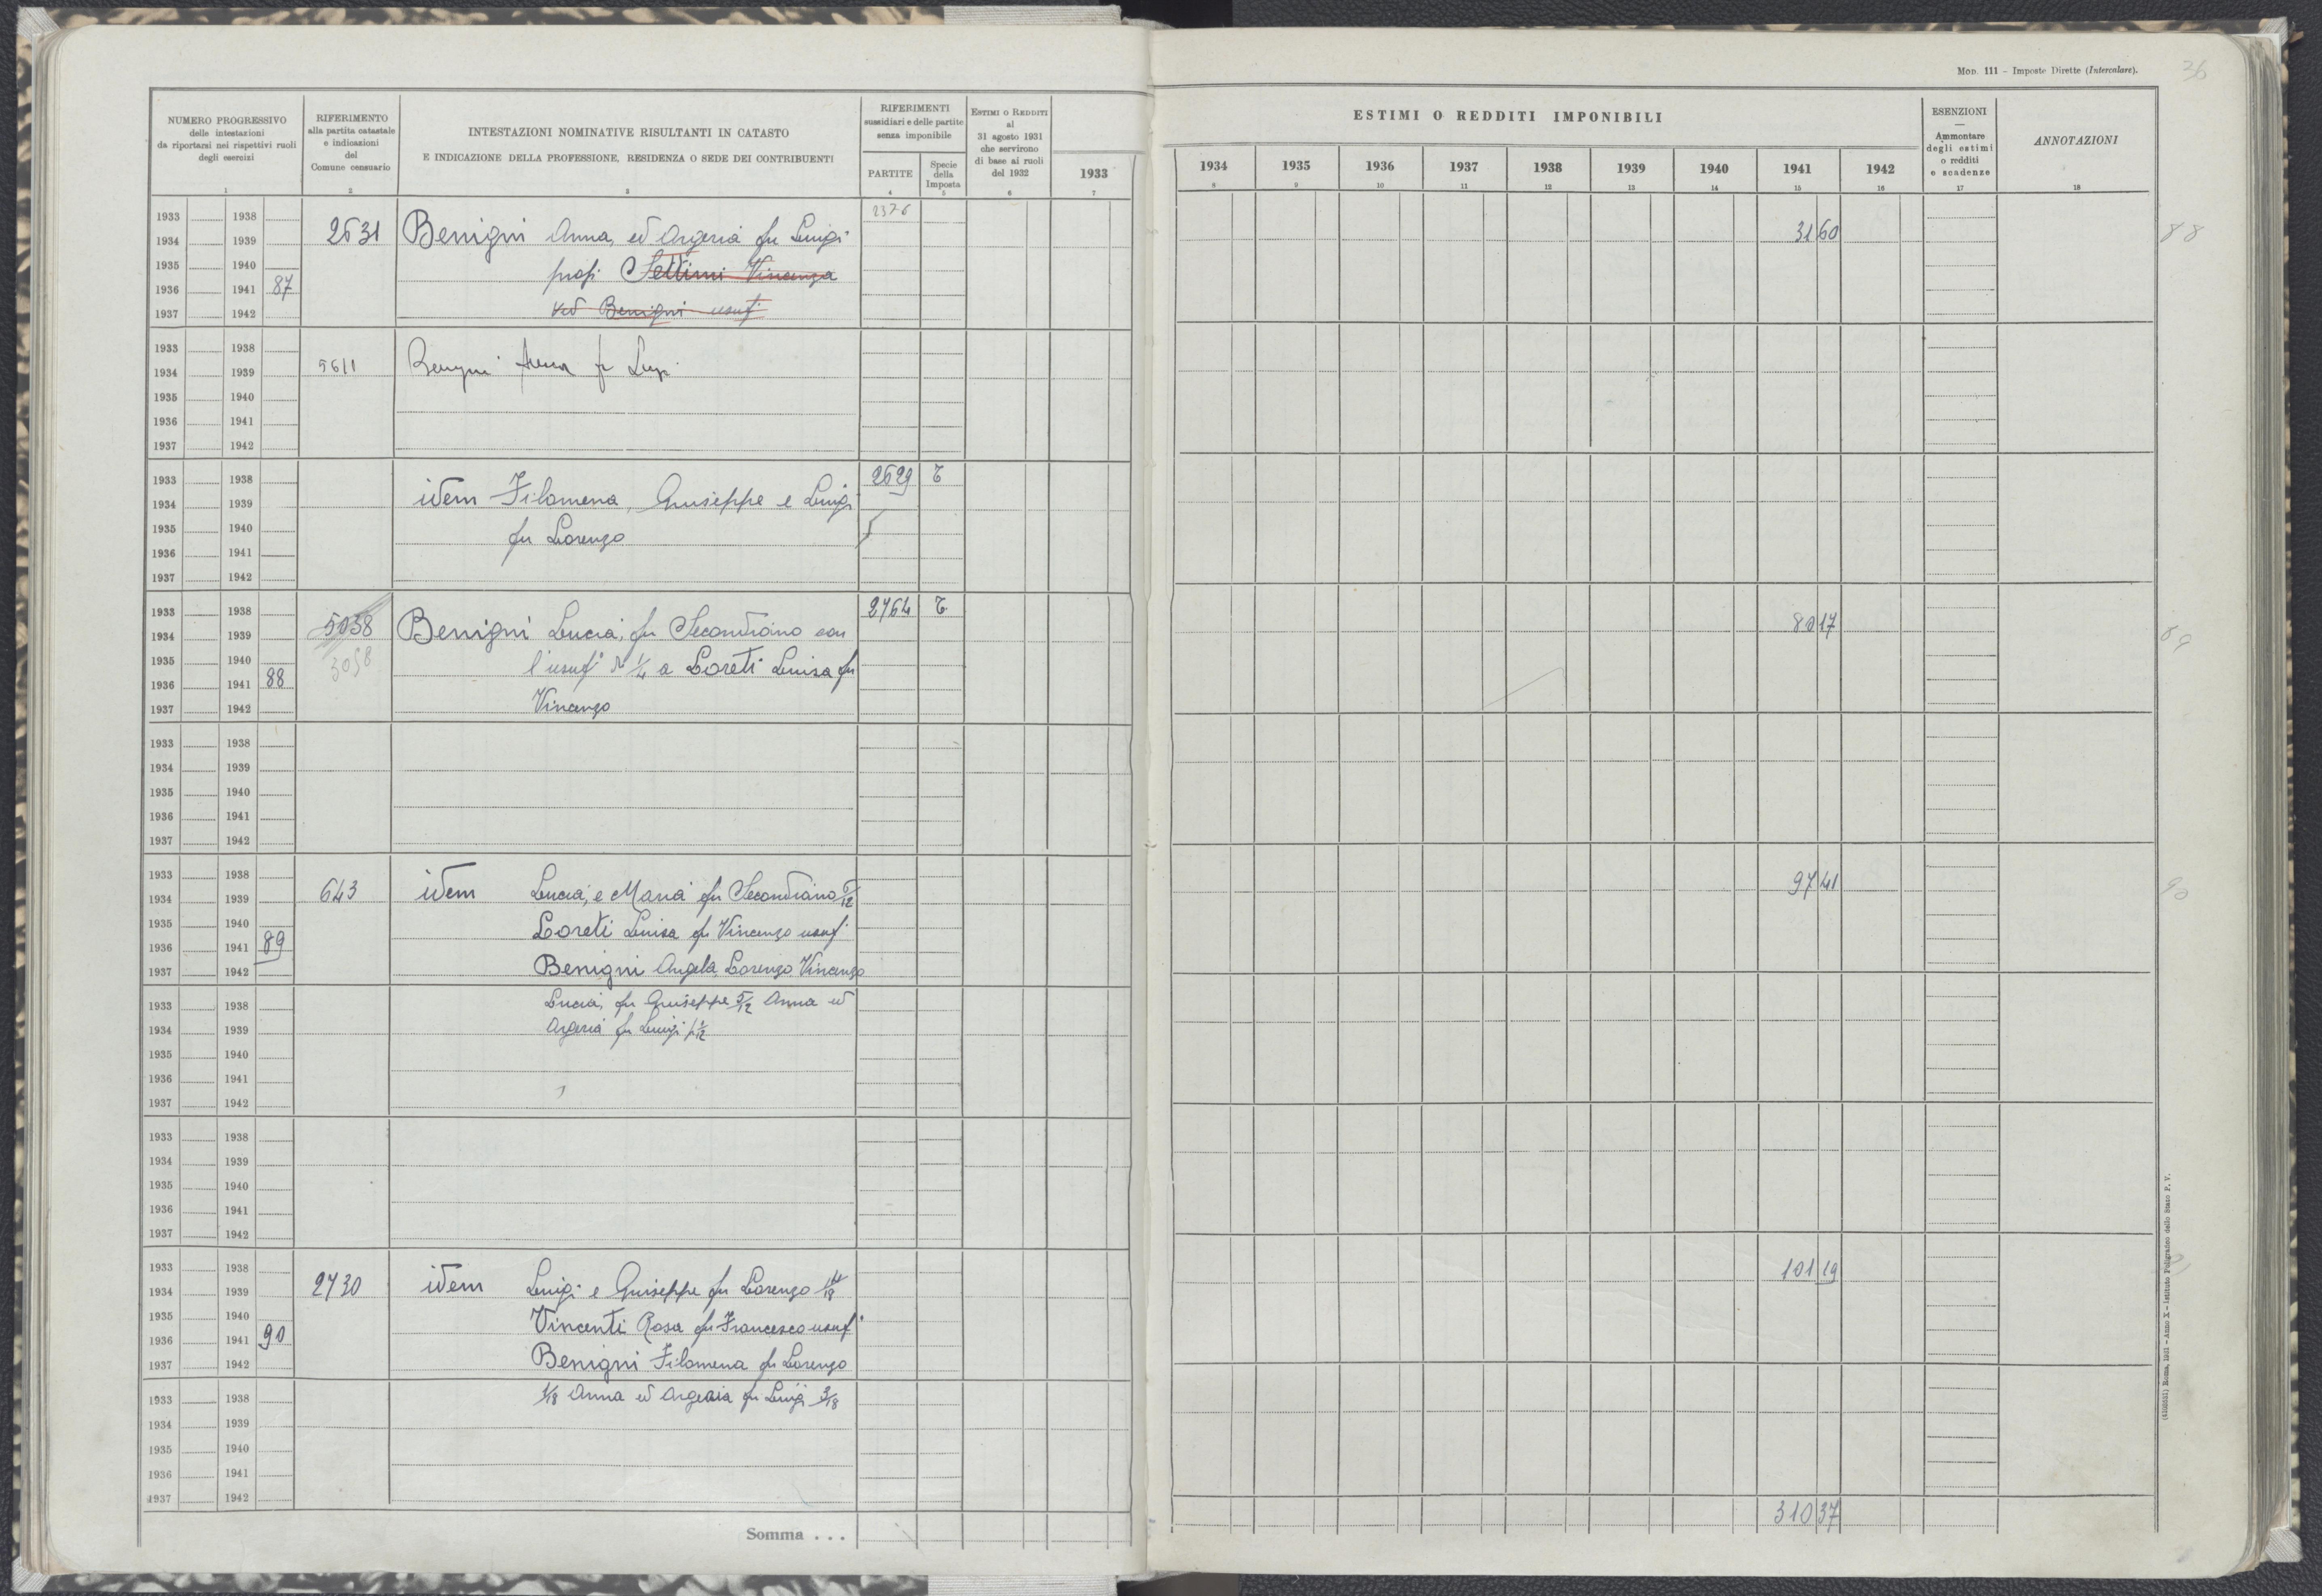 Mod. 111 - Imposte Dirette (Intercalare).
36
NUMERO PROGRESSIVO
delle intestazioni
da riportarsi nei rispettivi ruoli
degli esercizi
1
RIFERIMENTO
alla partita catastale
e indicazioni
del
Comune censuario
2
INTESTAZIONI NOMINATIVE RISULTANTI IN CATASTO
E INDICAZIONE DELLA PROFESSIONE, RESIDENZA O SEDE DEI CONTRIBUENTI
3
RIFERIMENTI
sussidiari e delle partite
senza imponibile
PARTITE
4
Specie
della
Imposta
5
Estimi o Redditi
al
31 agosto 1931
che servirono
di base ai ruoli
del 1932
6
1933
7
ESTIMI O REDDITI IMPONIBILI
1934 1935 1936 1937 1938 1939 1940 1941 1942
8 9 10 11 12 13 14 15 16
ESENZIONI
—
Ammontare
degli estimi
o redditi
e scadenze
17
ANNOTAZIONI
18
1933 1938 2376
1934 1939 2631 Benigni Anna, ed Argeria fu Luigi 31 60 88
1935 1940 propi Settimi Vincenza
1936 1941 87
1937 1942 ved Benigni usuf
1933 1938
1934 1939 5611 Benigni Anna fu Luigi
1935 1940
1936 1941
1937 1942
1933 1938 2629 T
1934 1939 idem Filomena, Giuseppe e Luigi
1935 1940 fu Lorenzo
1936 1941
1937 1942
1933 1938 2764 T
1934 1939 5058 Benigni Lucia, fu Secondiano con 80 17 89
1935 1940 3058 l'usuf° di 1/4 a Loreti Luisa fu
1936 1941 88
1937 1942 Vincenzo
1933 1938
1934 1939
1935 1940
1936 1941
1937 1942
1933 1938
1934 1939 643 idem Lucia, e Maria fu Secondiano 6/12 97 41 90
1935 1940 Loreti Luisa fu Vincenzo usuf
1936 1941 89
1937 1942 Benigni Angela Lorenzo Vincenzo
1933 1938 Lucia, fu Giuseppe 5/12 Anna ed
1934 1939 Argeria fu Luigi p 1/12
1935 1940
1936 1941
1937 1942
1933 1938
1934 1939
1935 1940
1936 1941
1937 1942
1933 1938
1934 1939 2730 idem Luigi e Giuseppe fu Lorenzo 14/18 101 19
1935 1940 Vincenti Rosa fu Francesco usuf
1936 1941 90
1937 1942 Benigni Filomena fu Lorenzo
1933 1938 1/18 Anna ed Argeria fu Luigi 3/18
1934 1939
1935 1940
1936 1941
1937 1942
Somma . . . 310 37
(410051) Roma, 1931 - Anno X - Istituto Poligrafico dello Stato P. V.